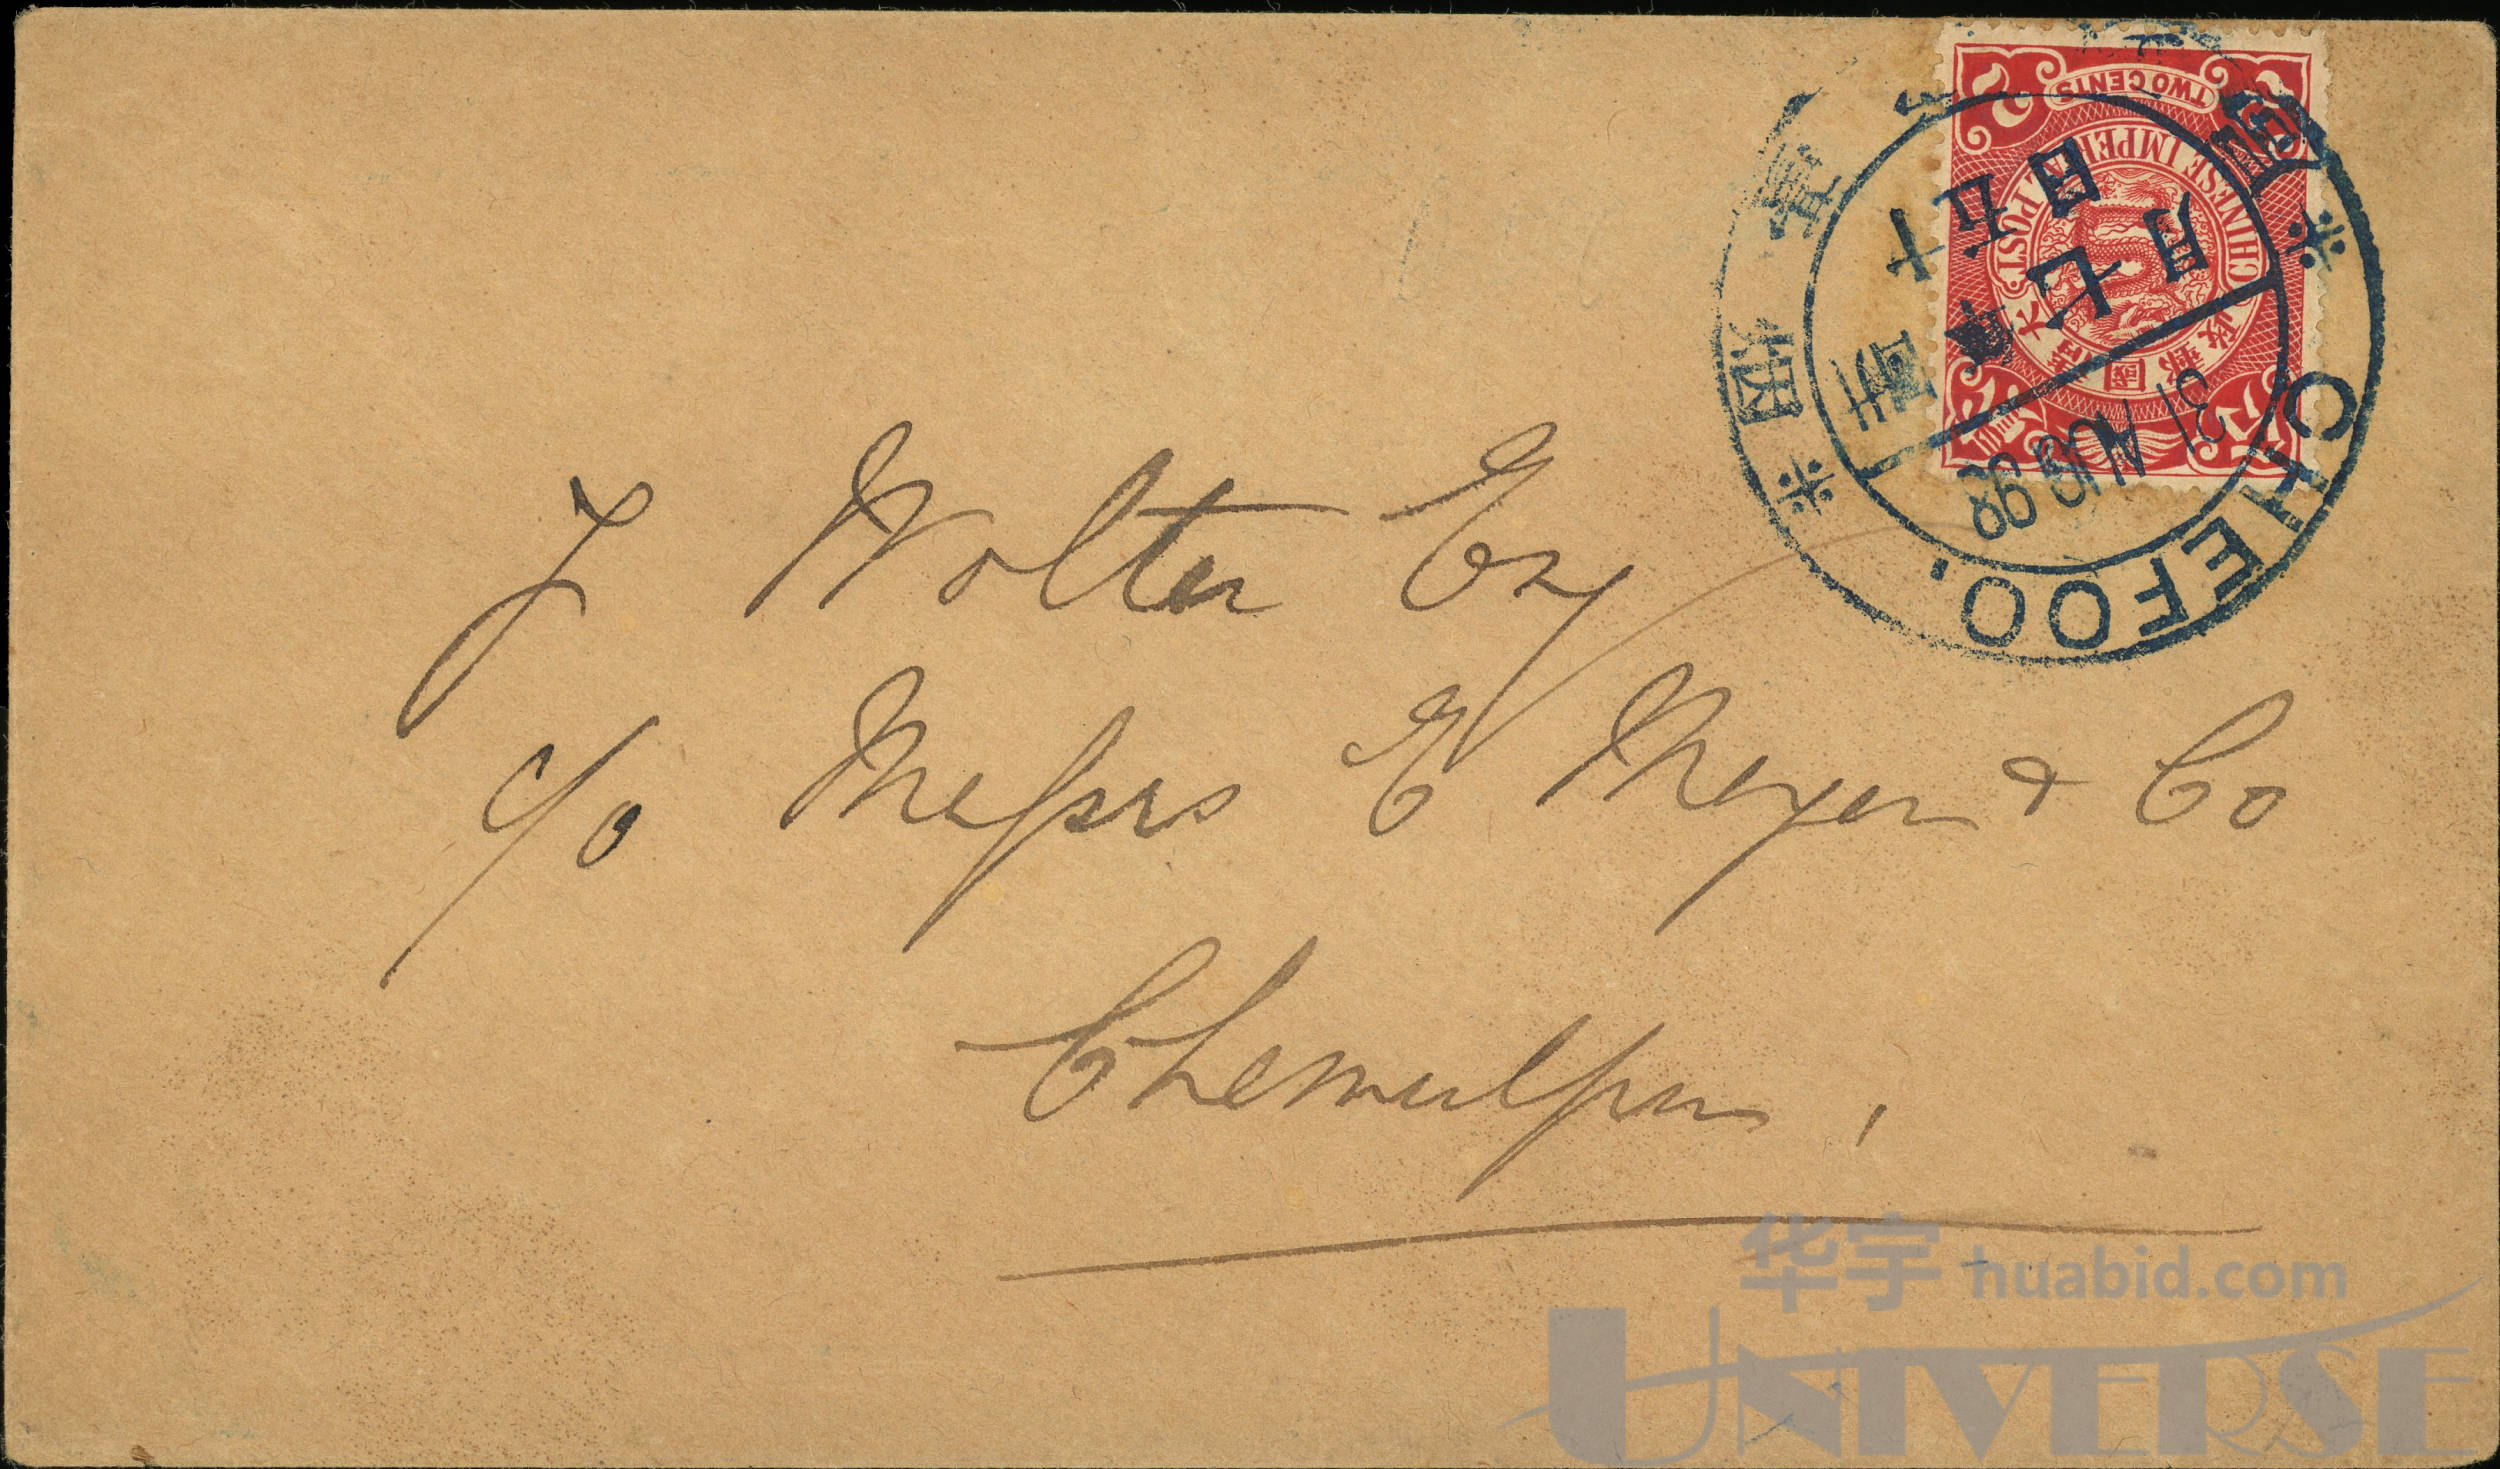 TWO CENTS
2 2
CHINESE IMPERIAL POST
大清國郵政
CHEFOO.
31 AUG 98
月七
日五十
烟
J Wolter Esq
c/o Messrs E Meyer & Co
Chemulpo,
华宇 huabid.com
UNIVERSE